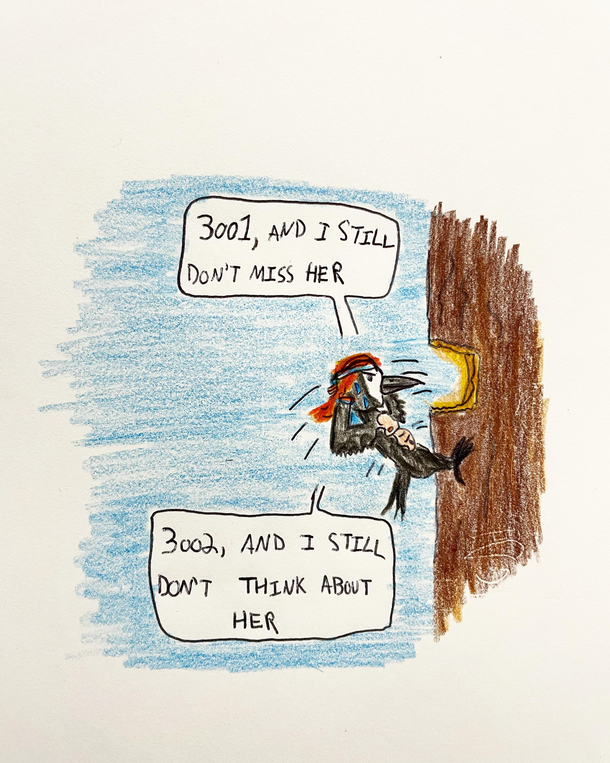 3001, AND I STILL
DON'T MISS HER
3002, AND I STILL
DON'T THINK ABOUT
HER